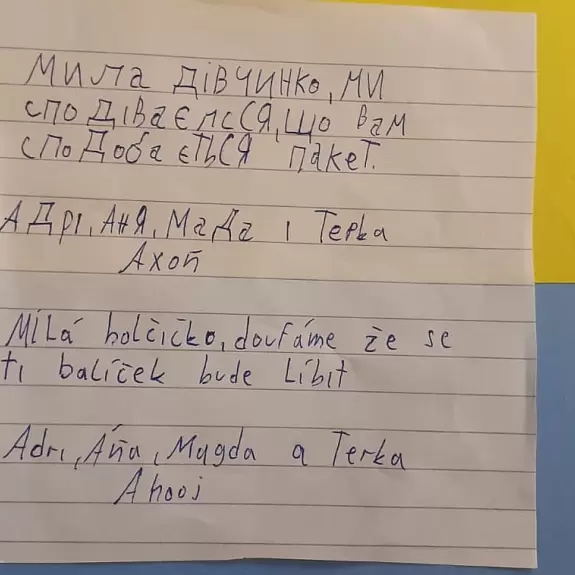 Мила дівчинко, ми
сподіваємся, що вам
сподобається пакет.
Адрі, Аня, Мада і Терка
Ахой
Milá holčičko, doufáme že se
ti balíček bude líbit
Adri, Áňa, Magda a Terka
Ahooj